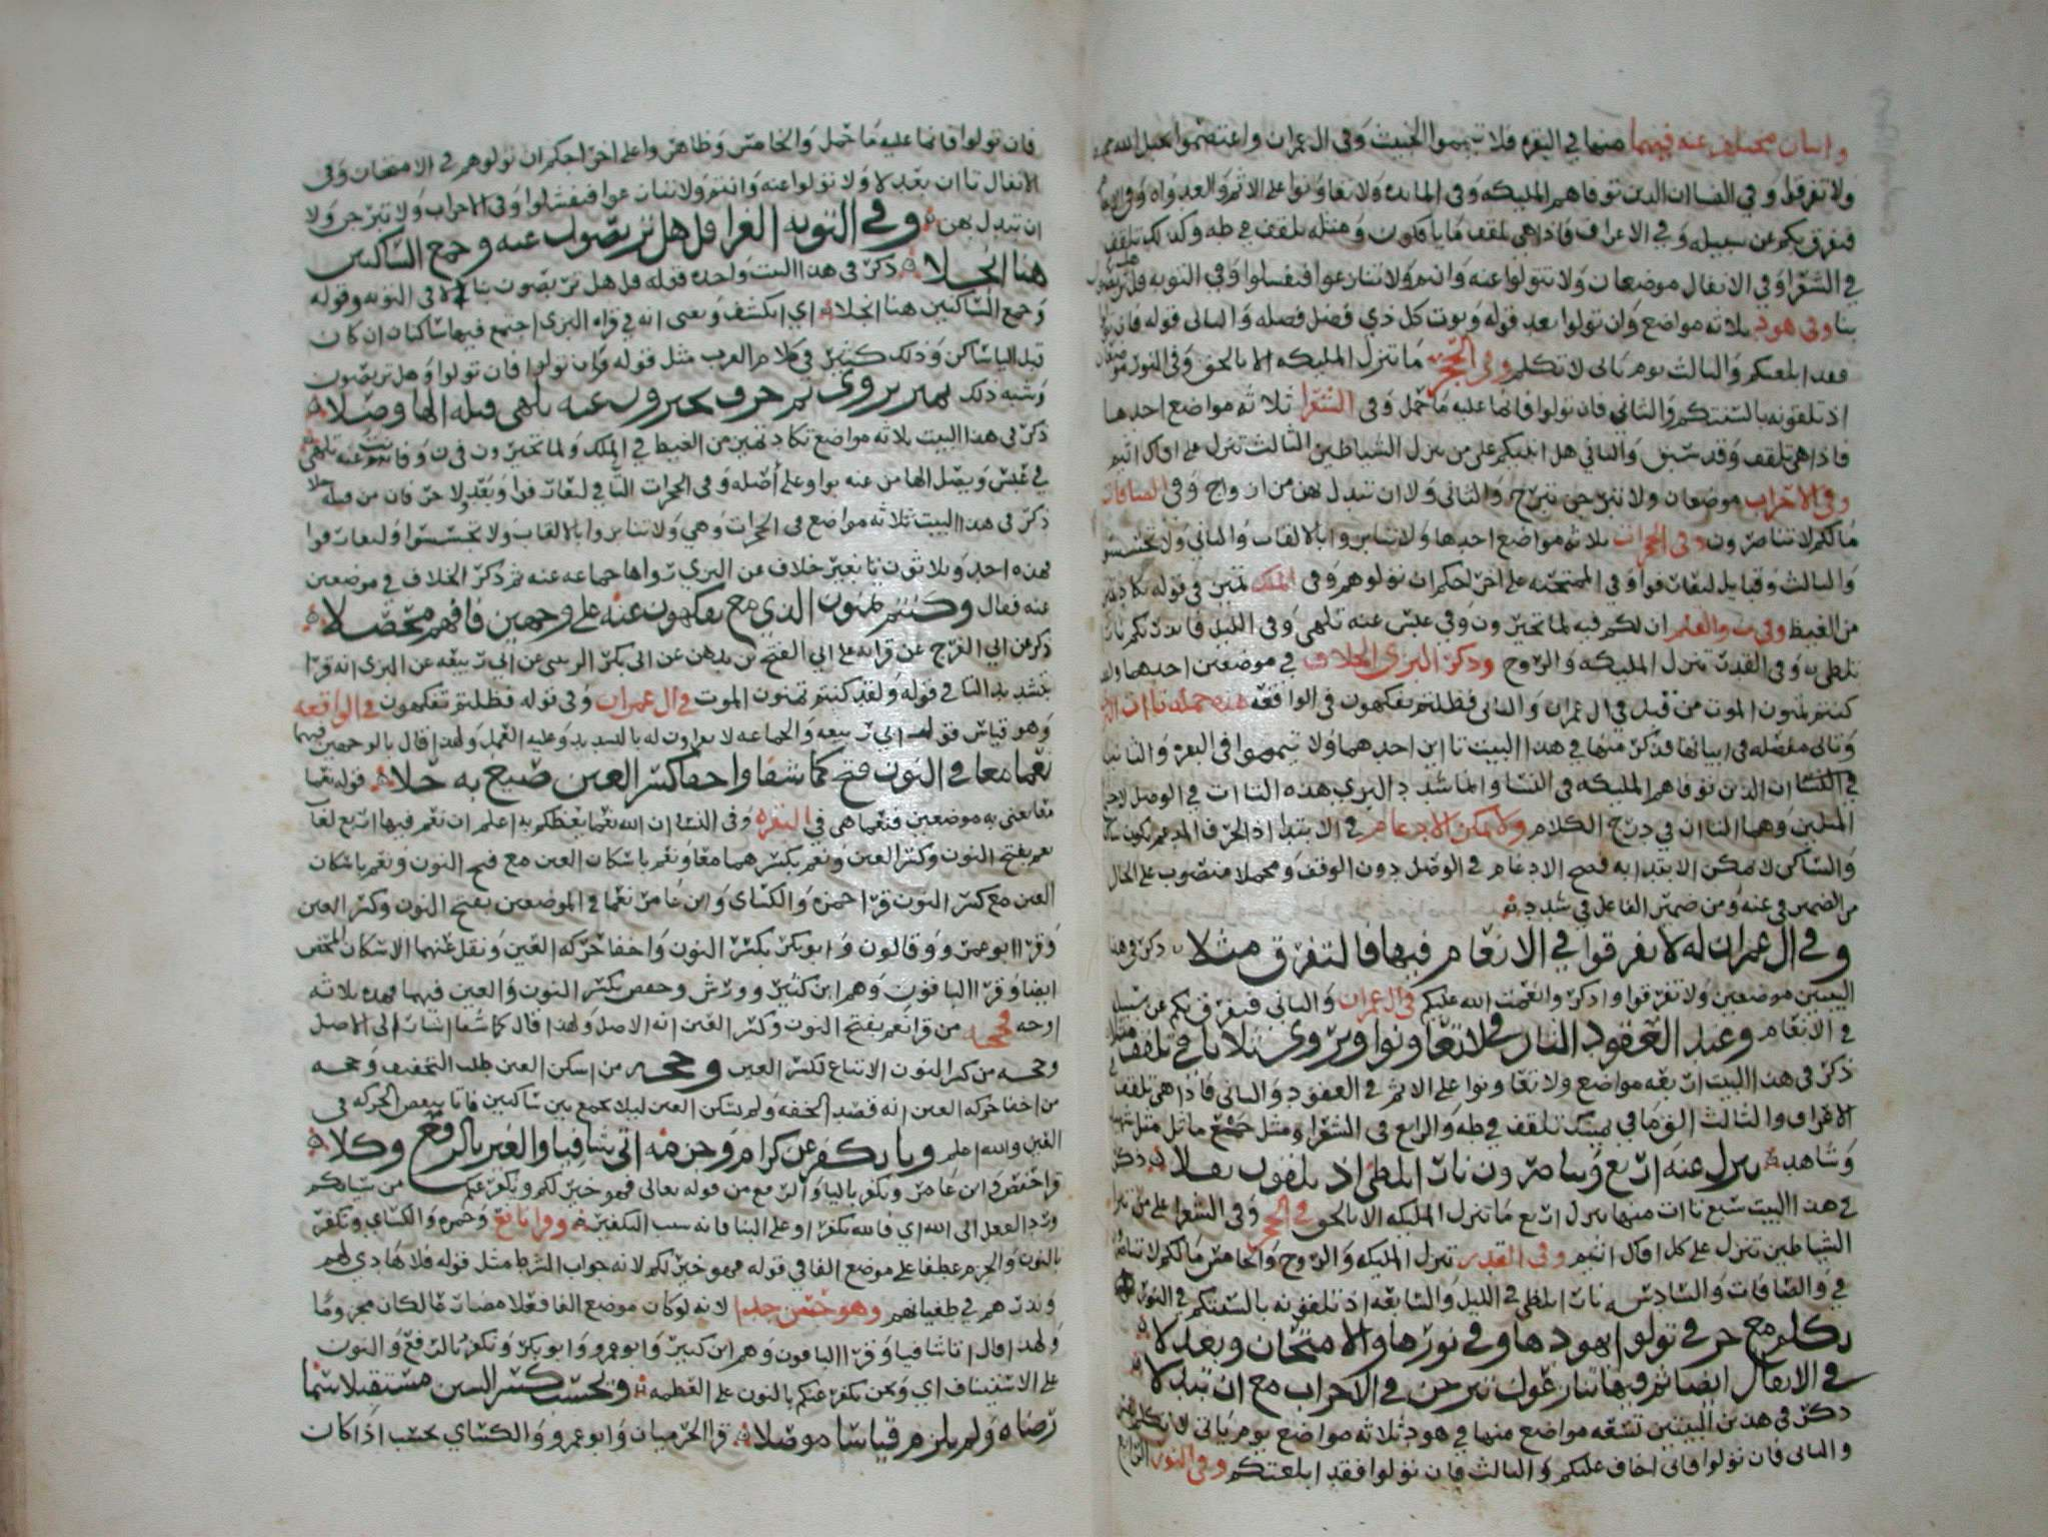 واثنان مختلف عنه فيهما منها في البقره فلا تيمموا الخبيث وفي ال عمران واعتصموا بحبل الله
ولا تفرقوا وفي النسا ان الذين توفاهم المليكه وفي المايده ولا تعاونوا على الاثم والعدوان
فتفرق بكم عن سبيله وفي الاعراف فاذا هي تلقف ما يافكون ومثله تلقف في طه وكذلك تلقف
في الشعرا وفي الانفال موضعان ولا تتولوا عنه وانتم ولا تنازعوا فتفشلوا وفي التوبه قل هل
بنا وفي هود ثلاثه مواضع وان تولوا بعد قوله ويوت كل ذي فضل فضله والثاني قوله فان تولوا
فقد ابلغتكم والثالث يوم ياتي لا تكلم وفي الحجر ما تنزل المليكه الا بالحق وفي النور
اذ تلقونه بالسنتكم والثاني فان تولوا فانما عليه ما حمل وفي الشعرا ثلاثه مواضع احدها
فاذا هي تلقف وقد سبق والثاني هل انبيكم على من تنزل الشياطين الثالث تنزل على افاك اثيم
وفي الاحزاب موضعان ولا تبرجن تبرج والثاني ولا ان تبدل بهن من ازواج وفي الصافات
ما لكم لا تناصرون وفي الحجرات ثلاثه مواضع احدها ولا تنابزوا بالالقاب والثاني ولا تجسسوا
والثالث وقبايل لتعارفوا وفي الممتحنه على اخراجكم ان تولوهم وفي الملك تميز في قوله تكاد تميز
من الغيظ وفي ن والقلم ان لكم فيه لما تخيرون وفي عبس عنه تلهى وفي الليل فانذرتكم نارا
تلظى وفي القدر تنزل المليكه والروح وذكر البزي الخلاف في موضعين احدهما
كنتم تمنون الموت من قبل في ال عمران والثاني فظلتم تفكهون في الواقعه هذه جمله تاات
وتاتي مفصله في ابياتها فذكر منها في هذا البيت تااين احدهما ولا تيمموا في البقره والثانيه
في النسا ان الذين توفاهم المليكه في النسا وانما شدد البزي هذه التاات في الوصل
المثلين وهما التاان في درج الكلام ولا يمكن الادغام في الابتدا اذ الحرف المدغم يكون
والساكن لا يمكن الابتدا به فصح الادغام في الوصل دون الوقف ومجملا منصوب على الحال
من الضمير في عنه ومن ضمير الفاعل في شدد
وفي ال عمران له لا تفرقوا في الانعام فيها فالتفرق مثلا ذكر في هذا
البيتين موضعين ولا تفرقوا واذكروا نعمت الله عليكم في ال عمران والثاني فتفرق بكم عن سبيله
في الانعام وعند العقود التا في لا تعاونوا ويروي ثلاثا في تلقف
ذكر في هذا البيت اربعه مواضع ولا تعاونوا على الاثم في العقود والثاني فاذا هي تلقف
الاعراف والثالث الق ما في يمينك تلقف في طه والرابع في الشعرا ومثل جمع ماثل مثل
وشاهد تنزل عنه اربع وتناصرون نارا تلظى اذ تلقون ثقلا ذكر
في هذا البيت سبع تاات منها تنزل اربع ما تنزل المليكه الا بالحق في الحجر وفي الشعرا على من تنزل
الشياطين تنزل على كل افاك اثيم وفي القدر تنزل المليكه والروح والخامس ما لكم لا تناصرون
في والصافات والسادسه نارا تلظى في الليل والسابعه اذ تلقونه بالسنتكم في النور
تكلم مع حرفي تولوا بهودها وفي نورها والامتحان وبعد لا
في الانفال ايضا ثم فيها تنازعوا تبرجن في الاحزاب مع ان تبدلا
ذكر في هذين البيتين تسعه مواضع منها في هود ثلاثه مواضع يوم ياتي لا تكلم
والثاني فان تولوا فاني اخاف عليكم والثالث فان تولوا فقد ابلغتكم وفي النور الرابع
فان تولوا فانما عليه ما حمل والخامس وظاهروا على اخراجكم ان تولوهم في الامتحان وفي
الانفال تاان بعد لا ولا تولوا عنه وانتم ولا تنازعوا فتفشلوا وفي الاحزاب ولا تبرجن ولا
ان تبدل بهن وفي التوبه الغرا قل هل تربصون عنه وجمع الساكنين
هنا انجلا ذكر في هذا البيت واحده قوله قل هل تربصون بنا في التوبه وقوله
وجمع الساكنين هنا انجلا اي انكشف ويعني انه في قراه البزي اجتمع فيها ساكنان ان كان
قبل التا ساكن وذلك كثير في كلام العرب مثل قوله وان تولوا فان تولوا وهل تربصون
وشبه ذلك تميز يروي ثم حرف تخيرون عنه تلهى قبله الها وصلا
ذكر في هذا البيت ثلاثه مواضع تكاد تميز من الغيظ في الملك ولما تخيرون في ن وفانت عنه تلهى
في عبس ويصل الها من عنه بواو على اصله وفي الحجرات التا في لتعارفوا وبعد ولا حرفان من قبله جلا
ذكر في هذا البيت ثلاثه مواضع في الحجرات وهي ولا تنابزوا بالالقاب ولا تجسسوا ولتعارفوا
بهذه احد وثلاثون تا بغير خلاف عن البزي رواها جماعه عنه ثم ذكر الخلاف في موضعين
عنه فقال وكنتم تمنون الذي مع تفكهون عنه على وجهين فافهم محصلا
ذكر عن ابي الفرج عن قراته على ابي الفتح بن بدهن عن ابي بكر الزينبي عن ابي ربيعه عن البزي انه قرا
بتشديد التا في قوله ولقد كنتم تمنون الموت في ال عمران وفي قوله فظلتم تفكهون في الواقعه
وهو قياس قول ابي ربيعه والجماعه لا يعرفون له بالتشديد وعليه العمل ولهذا قال بالوجهين فيهما
نعما معا في النون فتح كما شفا واخفا كسر العين صيغ به حلا قوله نعما
معا يعني به موضعين فنعما هي في البقره وفي النسا ان الله نعما يعظكم به اعلم ان نعم فيها اربع لغات
نعم بفتح النون وكسر العين ونعم بكسرهما معا ونعم باسكان العين مع فتح النون ونعم باسكان
العين مع كسر النون قرا حمزه والكساي وابن عامر نعما في الموضعين بفتح النون وكسر العين
وقرا ابو عمرو وقالون وابو بكر بكسر النون واخفا حركه العين ونقل عنهما الاسكان المحض
ايضا وقرا الباقون وهم ابن كثير وورش وحفص بكسر النون والعين فيهما فهذه ثلاثه
اوجه فحجه من قرا نعم بفتح النون وكسر العين انه الاصل ولهذا قال كما شفا اشارة الى الاصل
وحجه من كسر النون الاتباع لكسر العين وحجه من اسكن العين طلب التخفيف وحجه
من اخفا حركه العين انه قصد الخفه ولم يسكن العين ليلا يجمع بين ساكنين فاتا ببعض الحركه في
العين والله اعلم ويا يكفر عن كرام وجزمه اتى شافيا والغير بالرفع وكلا
قرا حفص وابن عامر ويكفر باليا والرفع من قوله تعالى فهو خير لكم ويكفر عنكم من سياتكم
ورد الفعل الى الله اي فالله يكفر او على البنا فانه سبب التكفير وقرا نافع وحمزه والكساي ونكفر
بالنون والجزم عطفا على موضع الفا في قوله فهو خير لكم لانه جواب الشرط مثل قوله فلا هادي لهم
ويذرهم في طغيانهم وهو حسن جدا لانه لو كان موضع الفا فعلا مضارعا لكان مجزوما
ولهذا قال اتا شافيا وقرا الباقون وهم ابن كثير وابو عمرو وابو بكر ونكفر بالرفع والنون
على الاستيناف اي ونحن نكفر عنكم بالنون على العظمه ويحسب كسر السين مستقبلا سما
رضاه ولم يلزم قياسا موصلا قرا الحرميان وابو عمرو والكساي يحسب اذا كان